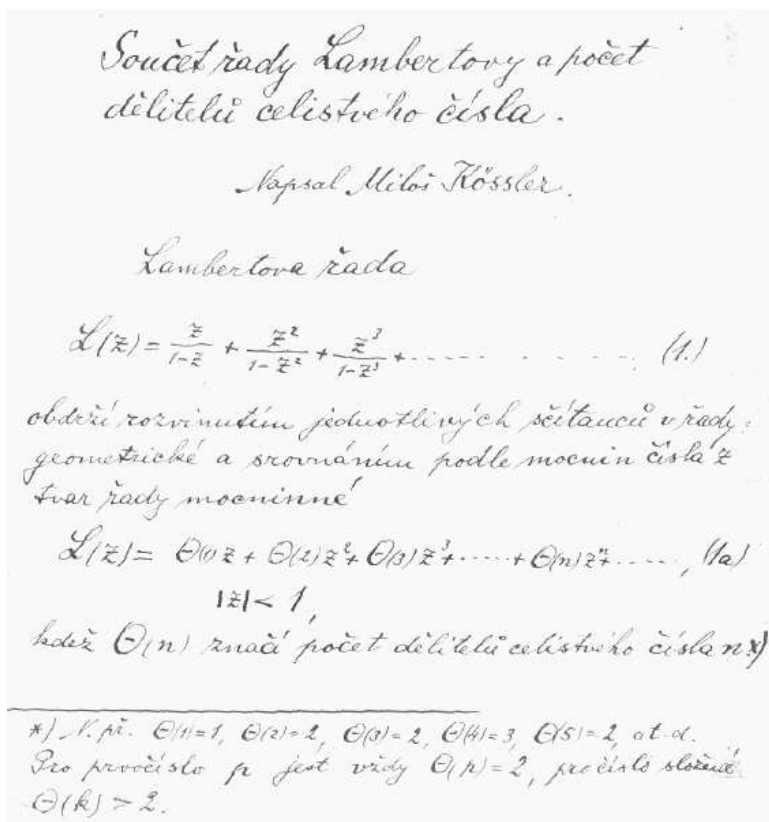 Součet řady Lambertovy a počet
dělitelů celistvého čísla.
Napsal Miloš Kössler.
Lambertova řada
L(z) = z/(1-z) + z²/(1-z²) + z³/(1-z³) + ........ (1.)
obdrží rozvinutím jednotlivých sčítanců v řady
geometrické a srovnáním podle mocnin čísla z
tvar řady mocninné
L(z) = Θ(1)z + Θ(2)z² + Θ(3)z³ + ...... + Θ(n)zⁿ + ......, (1a)
|z| < 1,
kdež Θ(n) značí počet dělitelů celistvého čísla n *)
*) N. př. Θ(1)=1, Θ(2)=2, Θ(3)=2, Θ(4)=3, Θ(5)=2, at.d.
Pro prvočíslo p jest vždy Θ(p)=2, pro číslo složené
Θ(k) > 2.